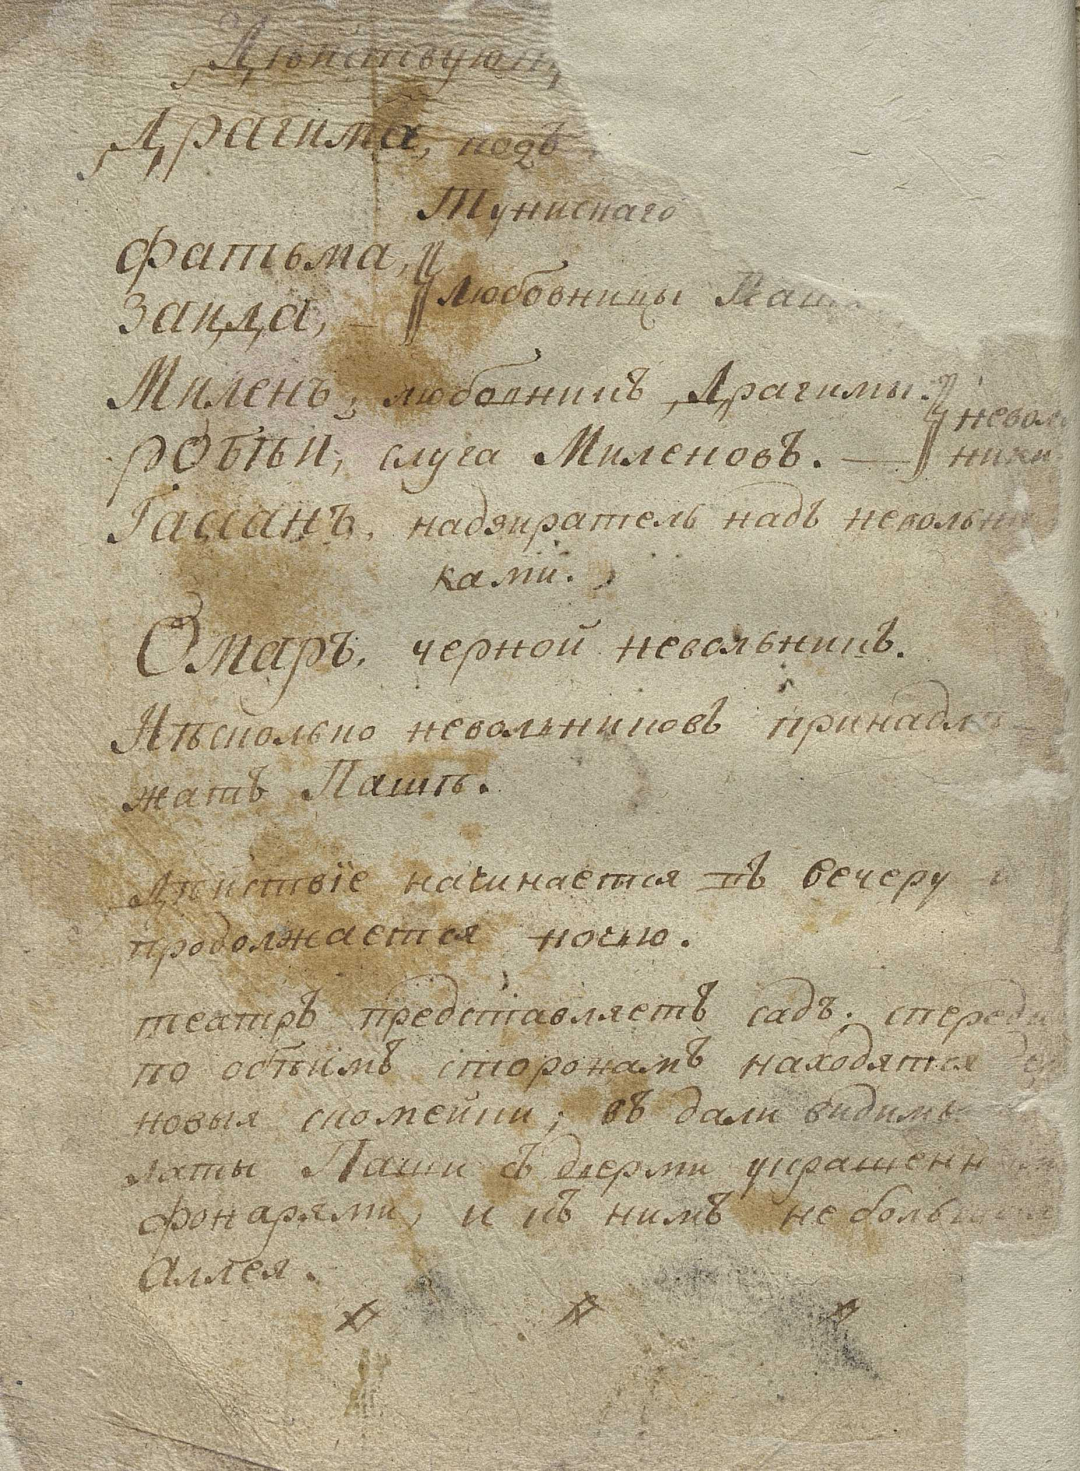 Дѣйствующ
Драгима, подъ
Тунискаго
Фатьма,
Заида, — Любовницы Паш
Миленъ, любовникъ Драгимы. неволь
робѣй, слуга Миленовъ. — ники
Гассанъ, надзиратель надъ неволь
ками.
Омаръ, черной невольникъ.
Нѣсколько невольниковъ принадлѣ
жатъ Пашѣ.
Дѣйствїе начинается къ вечеру и
продолжается ночью.
театръ представляетъ садъ. спереди
по обѣимъ сторонамъ находятся
новыя скомейки; въ дали видимы
латы Паши съ дверми украшенн
фонарями, и къ нимъ небольшая
Аллея.